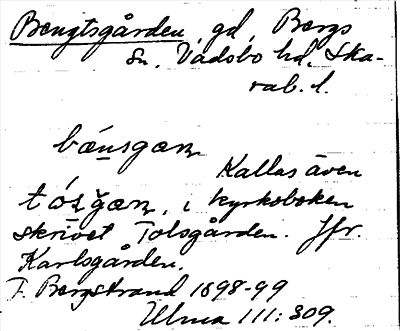 Bengtsgården, gd, Bergs
sn. Vadsbo hd. Ska-
rab. l.
bǽnsgaꞃ
Kallas även
tósgaꞃ, i kyrkoboken
skrivet Tolsgården. Jfr.
Karlsgården.
F. Bergstrand 1898-99
Ulma 111:309.